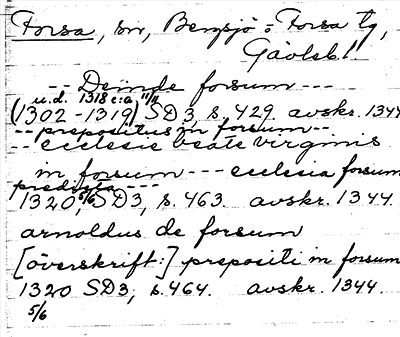 Forsa, sn, Bergsjö o Forsa tg,
Gävleb. l.
-- Deinde forsum ---
u.d. 1318 c:a 11/11
(1302-1319) SD3, s. 429. avskr. 1344
-- prepositus in forsum --
-- ecclesie beate virginis
in forsum --- ecclesia forsum
predicta ---
1320 5/6, SD3, s. 463. avskr. 1344.
arnoldus de forsum
[överskrift:] prepositi in forsum
1320 SD3, s. 464. avskr. 1344.
5/6